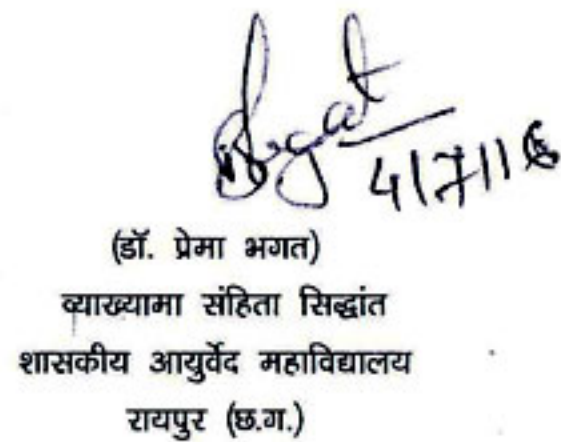 Bhagat
4/7/16
(डॉ. प्रेमा भगत)
व्याख्यामा संहिता सिद्धांत
शासकीय आयुर्वेद महाविद्यालय
रायपुर (छ.ग.)